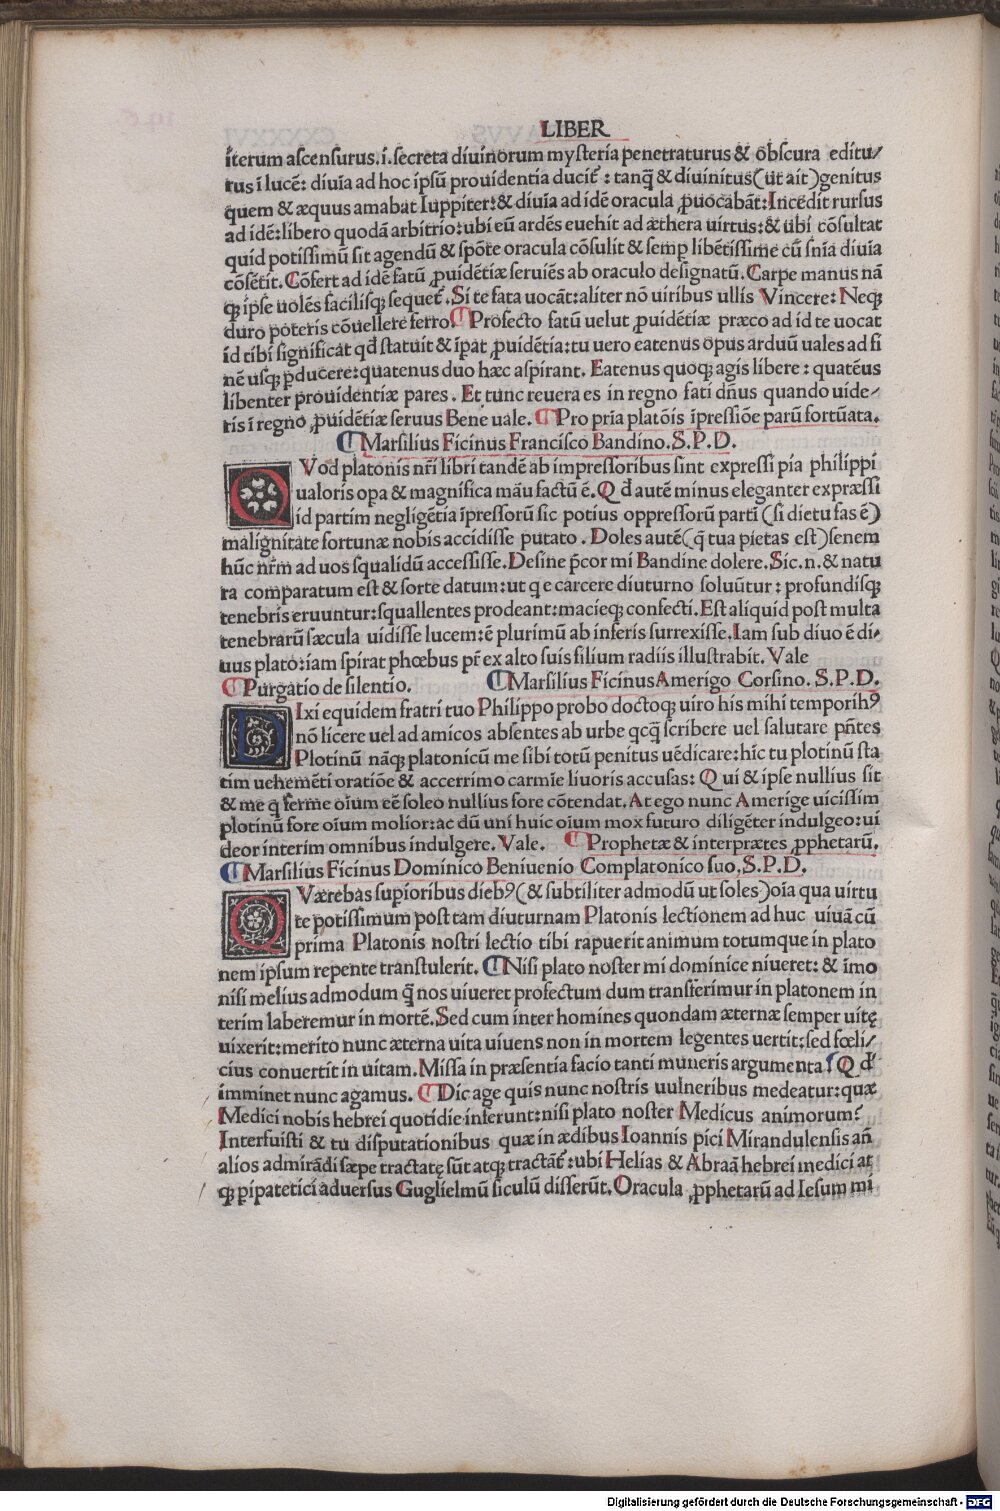 LIBER
iterum ascensurus.i.secreta diuinorum mysteria penetraturus & obscura editu/
rus ī lucē: diuīa ad hoc ipsū prouidentia ducit̄: tanq̄ & diuinitus (ut ait) genitus
quem & æquus amabat Iuppiter: & diuīa ad idē oracula ꝓuocabāt: Incedit rursus
ad idē: libero quodā arbitrio: ubi eū ardēs euehit ad æthera uirtus: & ubi cōsultat
quid potissimū sit agendū & spōte oracula cōsulit & semp̄ libētissime cū snīa diuīa
cōsētit. Cōfert ad idē fatū ꝓuidētiæ seruiēs ab oraculo designatū. Carpe manus nā
qꝫ ipse uolēs facilisqꝫ sequet̄. Si te fata uocāt: aliter nō uiribus ullis Vincere: Neqꝫ
duro poteris cōuellere ferro. ¶ Profecto fatū uelut ꝓuidētiæ præco ad id te uocat
id tibi significat qđ statuit & īpat ꝓuidētia: tu uero eatenus opus arduū uales ad fi
nē usqꝫ ꝑducere: quatenus duo hæc aspirant. Eatenus quoqꝫ agis libere: quatēus
libenter prouidentiæ pares. Et tunc reuera es in regno fati dñus quando uide/
ris ī regno ꝓuidētiæ seruus Bene uale. ¶ Pro pria platōis īpressiōe parū fortūata.
¶ Marsilius Ficinus Francisco Bandino. S.P.D.
QVod platonis nr̄i libri tandē ab impressoribus sint expressi pia philippi
ualoris opa & magnifica māu factū ē. Q đ autē minus eleganter expræssi
id partim negligētia īpressorū sic potius oppressorū partī (si dictu fas ē)
malignitate fortunæ nobis accidisse putato. Doles autē (q̄ tua pietas est) senem
hūc nr̄m ad uos squalidū accessisse. Desine p̄cor mi Bandine dolere. Sic.n. & natu
ra comparatum est & sorte datum: ut q e carcere diuturno soluūtur: profundisqꝫ
tenebris eruuntur: squallentes prodeant: macieqꝫ confecti. Est aliquid post multa
tenebrarū sæcula uidisse lucem: ē plurimū ab inferis surrexisse. Iam sub diuo ē di/
uus plato: iam spirat phœbus pr̄ ex alto suis filium radiis illustrabit. Vale
¶ Purgatio de silentio. ¶ Marsilius Ficinus Amerigo Corsino. S.P.D.
DIxi equidem fratri tuo Philippo probo doctoqꝫ uiro his mihi temporibꝰ
nō licere uel ad amicos absentes ab urbe qcq̄ scribere uel salutare p̄ntes
Plotinū nāqꝫ platonicū me sibi totū penitus uēdicare: hīc tu plotinū sta
tim uehemēti oratiōe & accerrimo carmīe liuoris accusas: Q ui & ipse nullius sit
& me q̄ ferme oīum eē soleo nullius fore cōtendat. At ego nunc Amerige uicissim
plotinū fore oīum molior: ac dū uni huic oīum mox futuro diligēter indulgeo: ui
deor interim omnibus indulgere. Vale. ¶ Prophetæ & interprætes ꝓphetarū.
¶ Marsilius Ficinus Dominico Beniuenio Complatonico suo, S.P.D.
QVærebas supioribus diebꝰ (& subtiliter admodū ut soles) oīa qua uirtu
te potissimum post tam diuturnam Platonis lectionem ad huc uiuā cū
prima Platonis nostri lectio tibi rapuerit animum totumque in plato
nem ipsum repente transtulerit. ¶ Nisi plato noster mi dominice niueret: & īmo
nisi melius admodum q̄ nos uiueret profectum dum transferimur in platonem in
terim laberemur in mortē. Sed cum inter homines quondam æternæ semper uitę
uixerit: merito nunc æterna uita uiuens non in mortem legentes uertit: sed fœli/
cius conuertit in uitam. Missa in præsentia facio tanti muneris argumenta ¶ Q đ
imminet nunc agamus. ¶ Dic age quis nunc nostris uulneribus medeatur: quæ
Medici nobis hebrei quotidie inferunt: nisi plato noster Medicus animorum?
Interfuisti & tu disputationibus quæ in ædibus Ioannis pici Mirandulensis añ
alios admirādi sæpe tractatę sūt atqꝫ tractāt̄: ubi Helias & Abraā hebrei medici at
qꝫ pipatetici aduersus Guglielmū siculū disserūt. Oracula ꝓphetarū ad Iesum mi
Digitalisierung gefördert durch die Deutsche Forschungsgemeinschaft - DFG